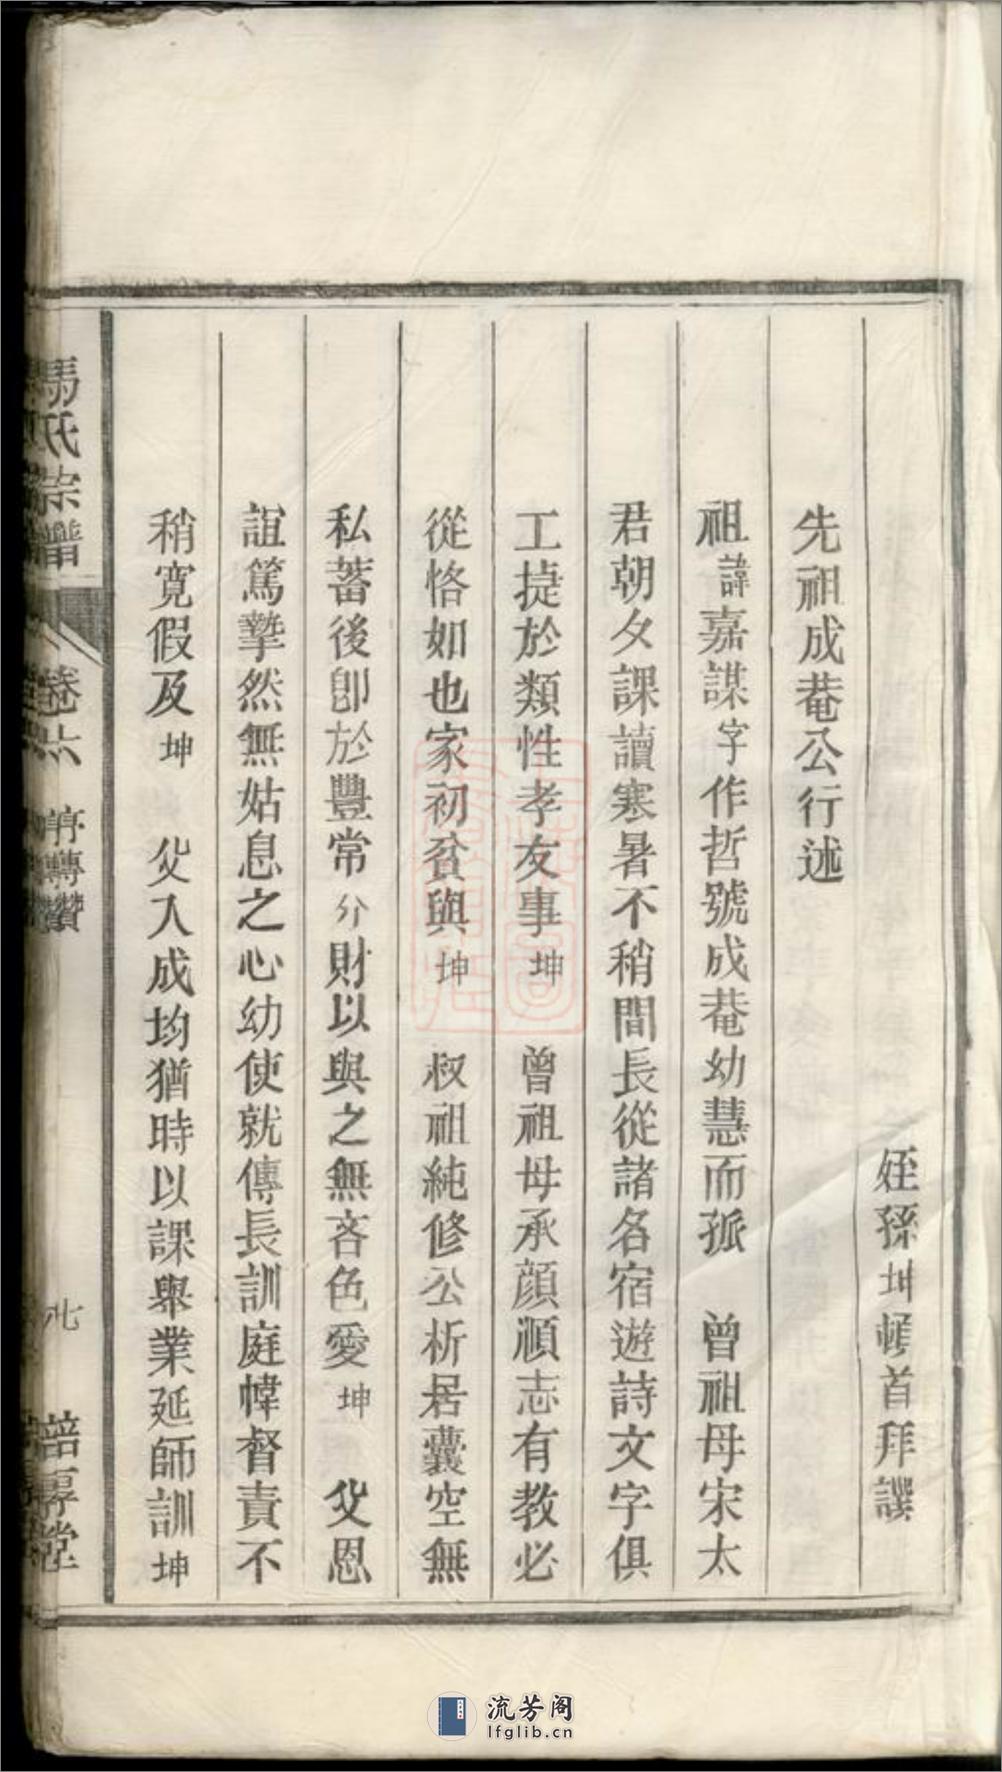 姪孫坤頓首拜譔
先祖成菴公行述
祖諱嘉謀字作哲號成菴幼慧而孤　曾祖母宋太
君朝夕課讀寒暑不稍間長從諸名宿遊詩文字俱
工捷於類性孝友事坤　曾祖母承顏順志有教必
從恪如也家初貧與坤　叔祖純修公析居囊空無
私蓄後卽於豐常分財以與之無吝色愛坤　父恩
誼篤摯然無姑息之心幼使就傅長訓庭幃督責不
稍寬假及坤　父入成均猶時以課舉業延師訓坤
馬氏宗譜　卷六　序傳贊　堂
流芳阁
lfglib.cn